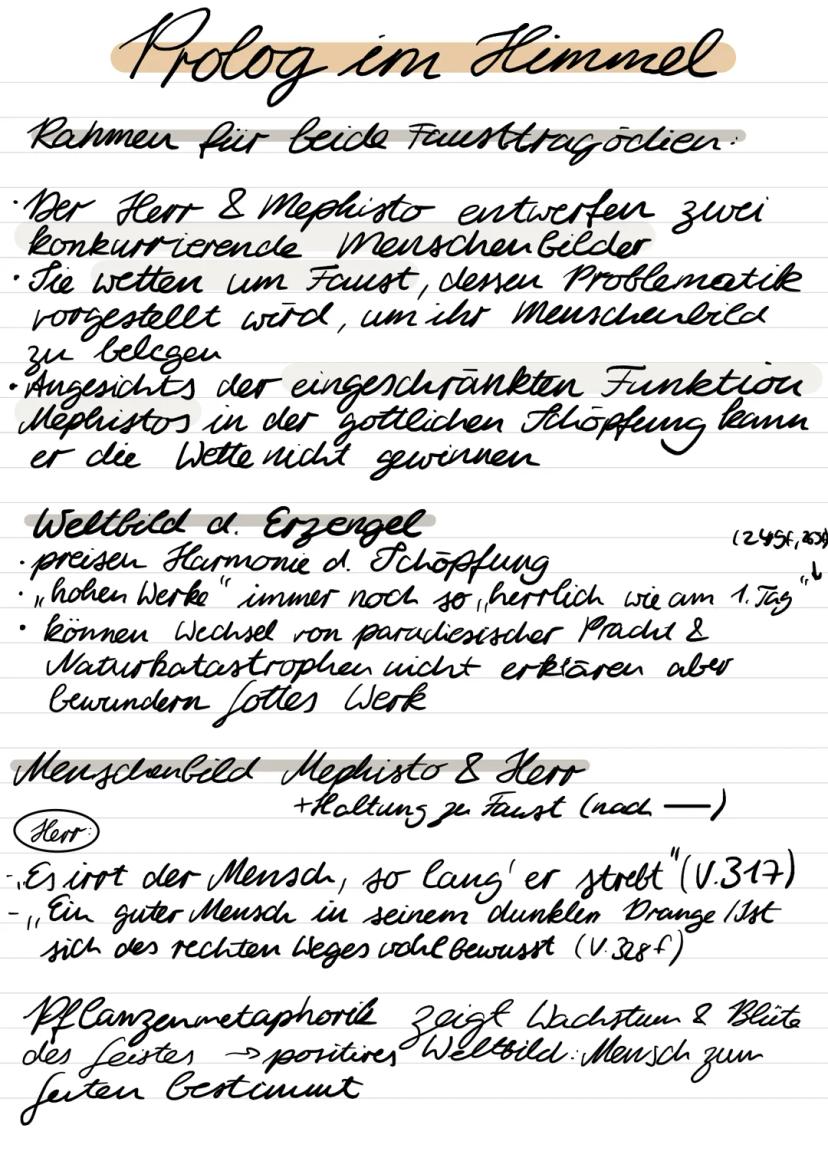 Prolog im Himmel
Rahmen für beide Fausttragödien:
· Der Herr & Mephisto entwerfen zwei
konkurrierende Menschenbilder
· Sie wetten um Faust, dessen Problematik
vorgestellt wird, um ihr Menschenbild
zu belegen
· Angesichts der eingeschränkten Funktion
Mephistos in der göttlichen Schöpfung kann
er die Wette nicht gewinnen
Weltbild d. Erzengel
· preisen Harmonie d. Schöpfung
· „hohen Werke" immer noch so „herrlich wie am 1. Tag"
· können Wechsel von paradiesischer Pracht &
Naturkatastrophen nicht erklären aber
bewundern Gottes Werk
Menschenbild Mephisto & Herr
+Haltung zu Faust (nach —)
Herr:
- „Es irrt der Mensch, so lang' er strebt" (V.317)
- „Ein guter Mensch in seinem dunklen Drange / Ist
sich des rechten Weges wohl bewusst (V.328f)
Pflanzenmetaphorik zeigt Wachstum & Blüte
des Geistes → positives Weltbild: Mensch zum
Guten bestimmt